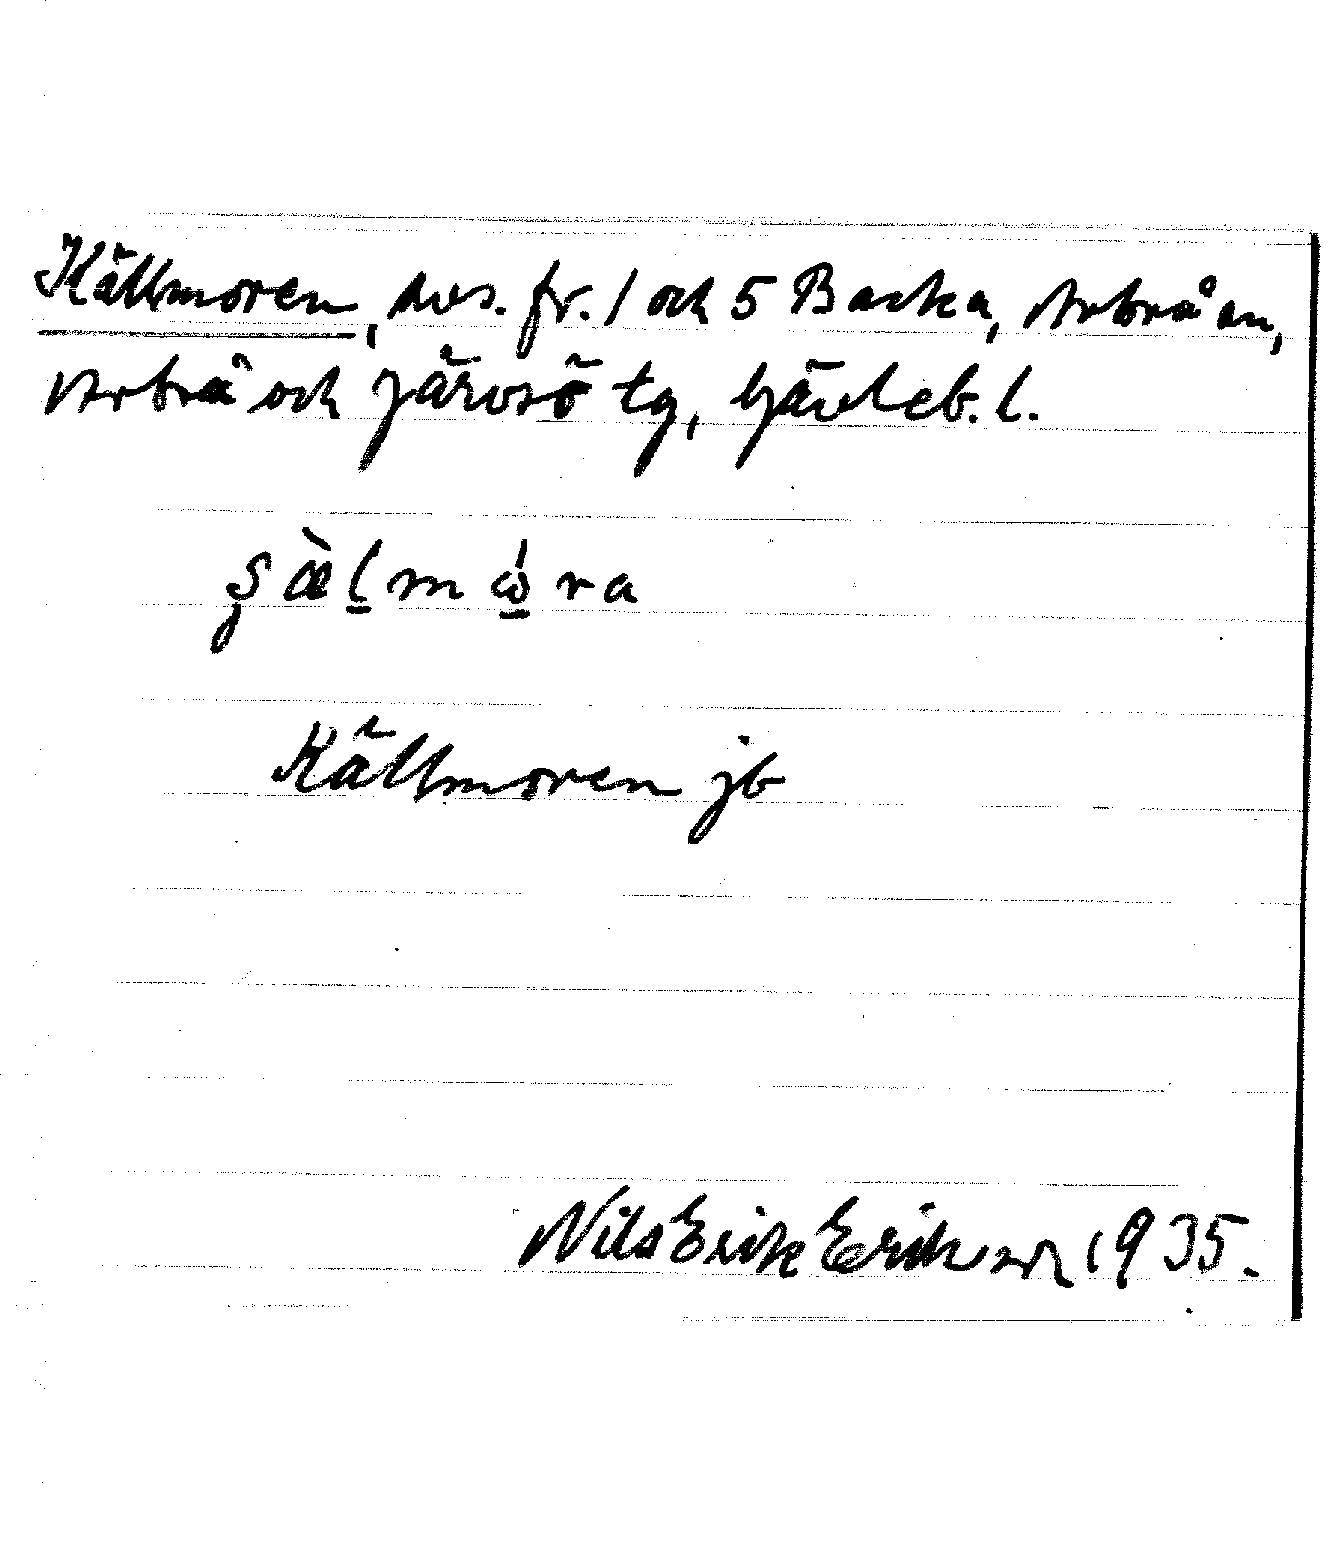 Källmoren, avs. fr. 1 och 5 Backa, Arbrå sn,
Arbrå och Järvsö tg, Gävleb. l.
Källmoren jb
Nils Erik Eriksson 1935.